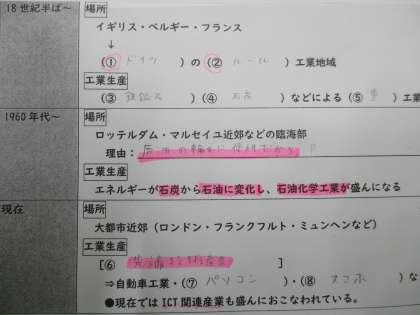 18世紀半ば～
場所
イギリス・ベルギー・フランス
↓
（① ドイツ ）の（② ルール ）工業地域
工業生産
（③ 鉄鉱石 ）（④ 石炭 ）などによる（⑤ 重 ）工業
1960年代～
場所
ロッテルダム・マルセイユ近郊などの臨海部
理由：原油の輸入に便利だから
工業生産
エネルギーが石炭から石油に変化し、石油化学工業が盛んになる
現在
場所
大都市近郊（ロンドン・フランクフルト・ミュンヘンなど）
工業生産
[⑥ 先端技術産業 ]
⇒自動車工業・（⑦ パソコン ）・（⑧ スマホ ）な
●現在では ICT 関連産業も盛んにおこなわれている。